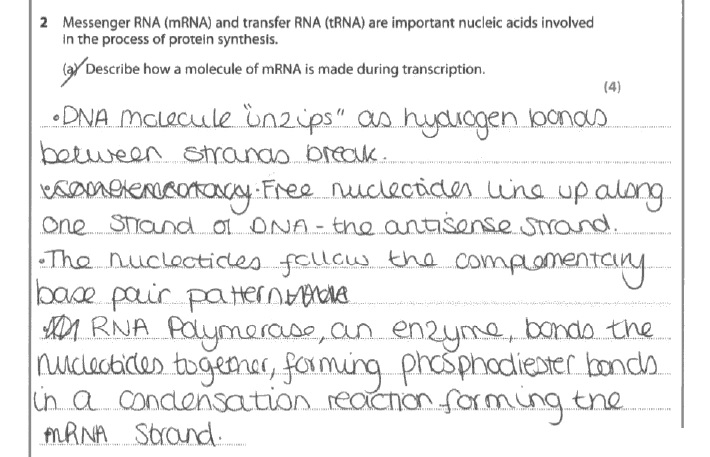 2 Messenger RNA (mRNA) and transfer RNA (tRNA) are important nucleic acids involved
in the process of protein synthesis.
(a) Describe how a molecule of mRNA is made during transcription.
(4)
• DNA molecule "unzips" as hydrogen bonds
between strands break.
• Free nucleotides line up along
one strand of DNA - the antisense strand.
• The nucleotides follow the complementary
base pair pattern
RNA Polymerase, an enzyme, bonds the
nucleotides together, forming phosphodiester bonds
in a condensation reaction forming the
mRNA strand.